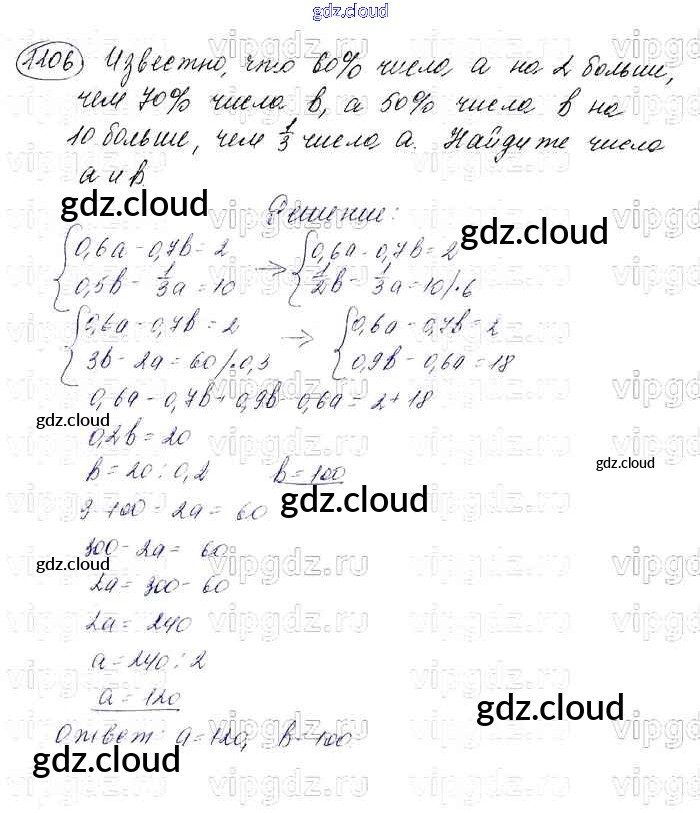 gdz.cloud
1106 Известно, что 60% числа a на 2 больше,
чем 70% числа b, а 50% числа b на
10 больше, чем 1/3 числа a. Найдите числа
a и b.
gdz.cloud
Решение:
gdz.cloud
{0,6a - 0,7b = 2 → {0,6a - 0,7b = 2
{0,5b - 1/3a = 10 {1/2b - 1/3a = 10 /·6
{0,6a - 0,7b = 2 → {0,6a - 0,7b = 2
{3b - 2a = 60 /·0,3 {0,9b - 0,6a = 18
0,6a - 0,7b + 0,9b - 0,6a = 2 + 18
gdz.cloud
0,2b = 20
gdz.cloud
b = 20 : 0,2 b = 100
3·100 - 2a = 60
gdz.cloud
300 - 2a = 60
gdz.cloud
2a = 300 - 60
2a = 240
a = 240 : 2
a = 120
gdz.cloud
Ответ: a = 120, b = 100
gdz.cloud